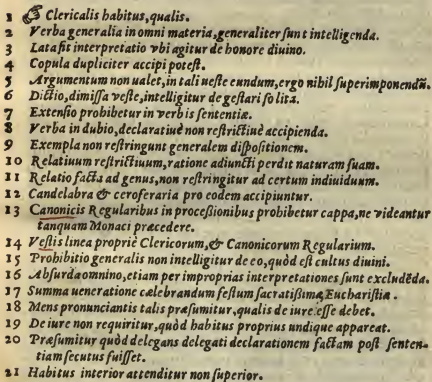 1 Clericalis habitus, qualis.
2 Verba generalia in omni materia, generaliter sunt intelligenda.
3 Lata fit interpretatio vbi agitur de honore diuino.
4 Copula dupliciter accipi potest.
5 Argumentum non ualet, in tali ueste eundum, ergo nihil superimponendũ.
6 Dictio, dimissa veste, intelligitur de gestari solita.
7 Extensio prohibetur in verbis sententiæ.
8 Verba in dubio, declaratiuè non restrictiuè accipienda.
9 Exempla non restringunt generalem dispositionem.
10 Relatiuum restrictiuum, ratione adiuncti perdit naturam suam.
11 Relatio facta ad genus, non restringitur ad certum indiuiduum.
12 Candelabra & ceroferaria pro eodem accipiuntur.
13 Canonicis Regularibus in processionibus prohibetur cappa, ne videantur
tanquam Monaci præcedere.
14 Vestis linea propriè Clericorum, & Canonicorum Regularium.
15 Prohibitio generalis non intelligitur de eo, quòd est cultus diuini.
16 Absurda omnino, etiam per improprias interpretationes sunt excludẽda.
17 Summa ueneratione cælebrandum festum sacratissimæ Eucharistiæ.
18 Mens pronunciantis talis præsumitur, qualis de iure esse debet.
19 De iure non requiritur, quòd habitus proprius undique appareat.
20 Præsumitur quòd delegans delegati declarationem factam post senten-
tiam secutus fuisset.
21 Habitus interior attenditur non superior.